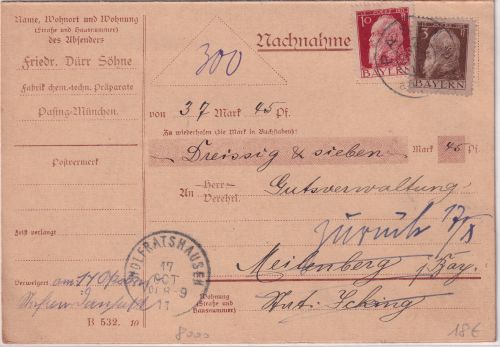 Name, Wohnort und Wohnung
(Straße und Hausnummer)
des Absenders
Friedr. Dürr Söhne
Fabrik chem.-techn. Präparate
Pasing-München.
Postvermerk
Frist verlangt
Verweigert am 17 Oktober
B 532. 10
300
Nachnahme
10
BAYERN
3
BAYERN
von 37 Mark 45 Pf.
Zu wiederholen (die Mark in Buchstaben):
Dreissig & sieben Mark 45 Pf.
An Herrn
Verehrl.
Gutsverwaltung
zurück 17/X
Meilenberg
Wohnung
(Straße und
Hausnummer)
Stat. Icking
WOLFRATSHAUSEN
17
OKT
8-9
11
8000
18€